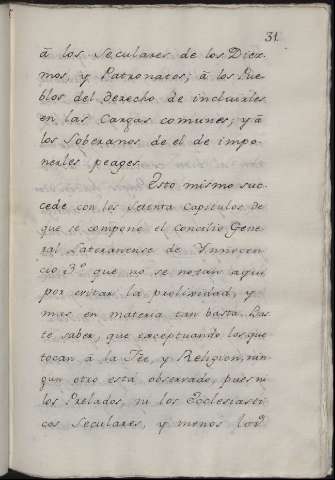 31.
â los Seculares de los Diez-
mos, y Patronatos; â los Pue-
blos del derecho de incluirles
en las Cargas comunes; y â
los Soberanos de el de impo-
nerles peages.
Esto mismo suc-
cede con los setenta Capitulos de
que se compone el Concilio Gene-
ral Lateranense de Ynnocen-
cio 3.º que no se notan aqui
por evitar la prolixidad, y
mas en materia tan basta. Bas-
te saber, que exceptuando los que
tocan â la Fee, y Religion, nin-
gun otro está observado, pues ni
los Prelados, ni los Ecclesiasti-
cos Seculares, y menos los